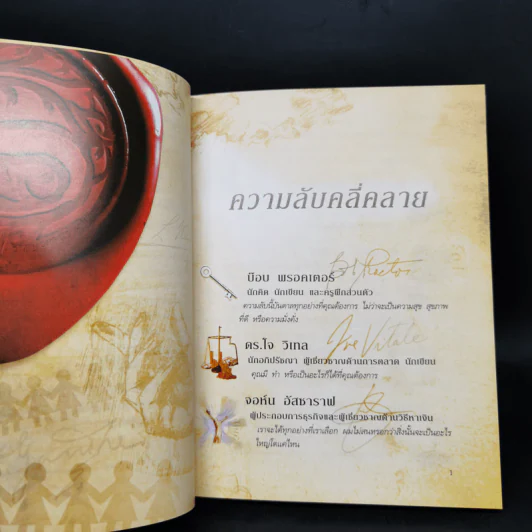 ความลับคลี่คลาย
บ๊อบ พรอคเตอร์
นักคิด นักเขียน และครูฝึกส่วนตัว
ความลับนี้บันดาลทุกอย่างที่คุณต้องการ ไม่ว่าจะเป็นความสุข สุขภาพ
ที่ดี หรือความมั่งคั่ง
ดร.โจ วิเทล
นักอภิปรัชญา ผู้เชี่ยวชาญด้านการตลาด นักเขียน
คุณมี ทำ หรือเป็นอะไรก็ได้ที่คุณต้องการ
Joe Vitale
จอห์น อัสซาราฟ
ผู้ประกอบการธุรกิจและผู้เชี่ยวชาญด้านวิธีหาเงิน
เราจะได้ทุกอย่างที่เราเลือก ผมไม่สนหรอกว่าสิ่งนั้นจะเป็นอะไร
ใหญ่โตแค่ไหน
1